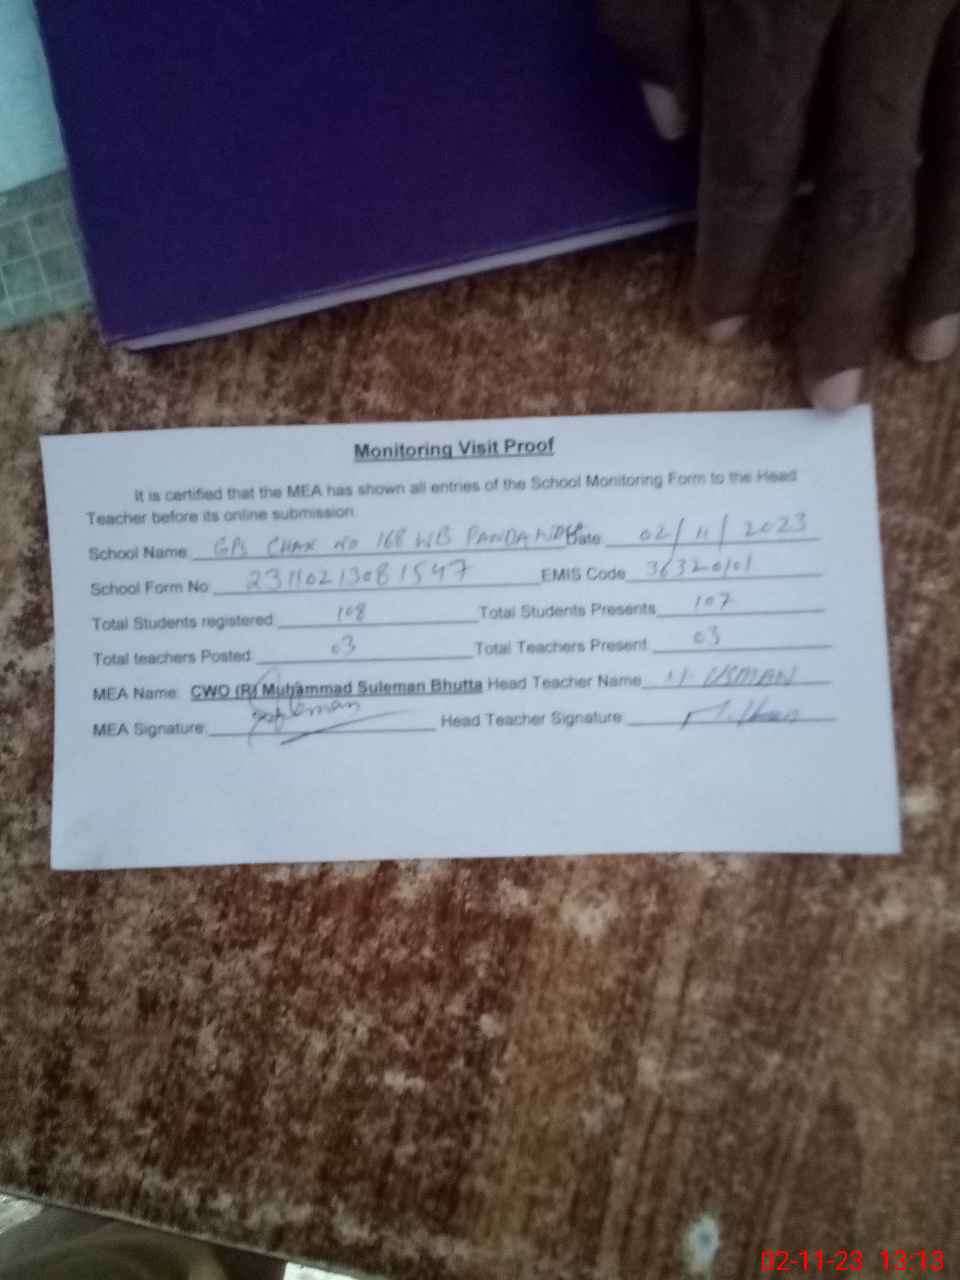 Monitoring Visit Proof
It is certified that the MEA has shown all entries of the School Monitoring Form to the Head
Teacher before its online submission.
School Name GPS CHAK NO 168 WB Date 02/11/2023
School Form No 23110213081547 EMIS Code 36320101
Total Students registered 108 Total Students Presents 107
Total teachers Posted: 03 Total Teachers Present 03
MEA Name: CWO (R) Muhammad Suleman Bhutta Head Teacher Name M. USMAN
MEA Signature: Suleman Head Teacher Signature:
02-11-23 13:13